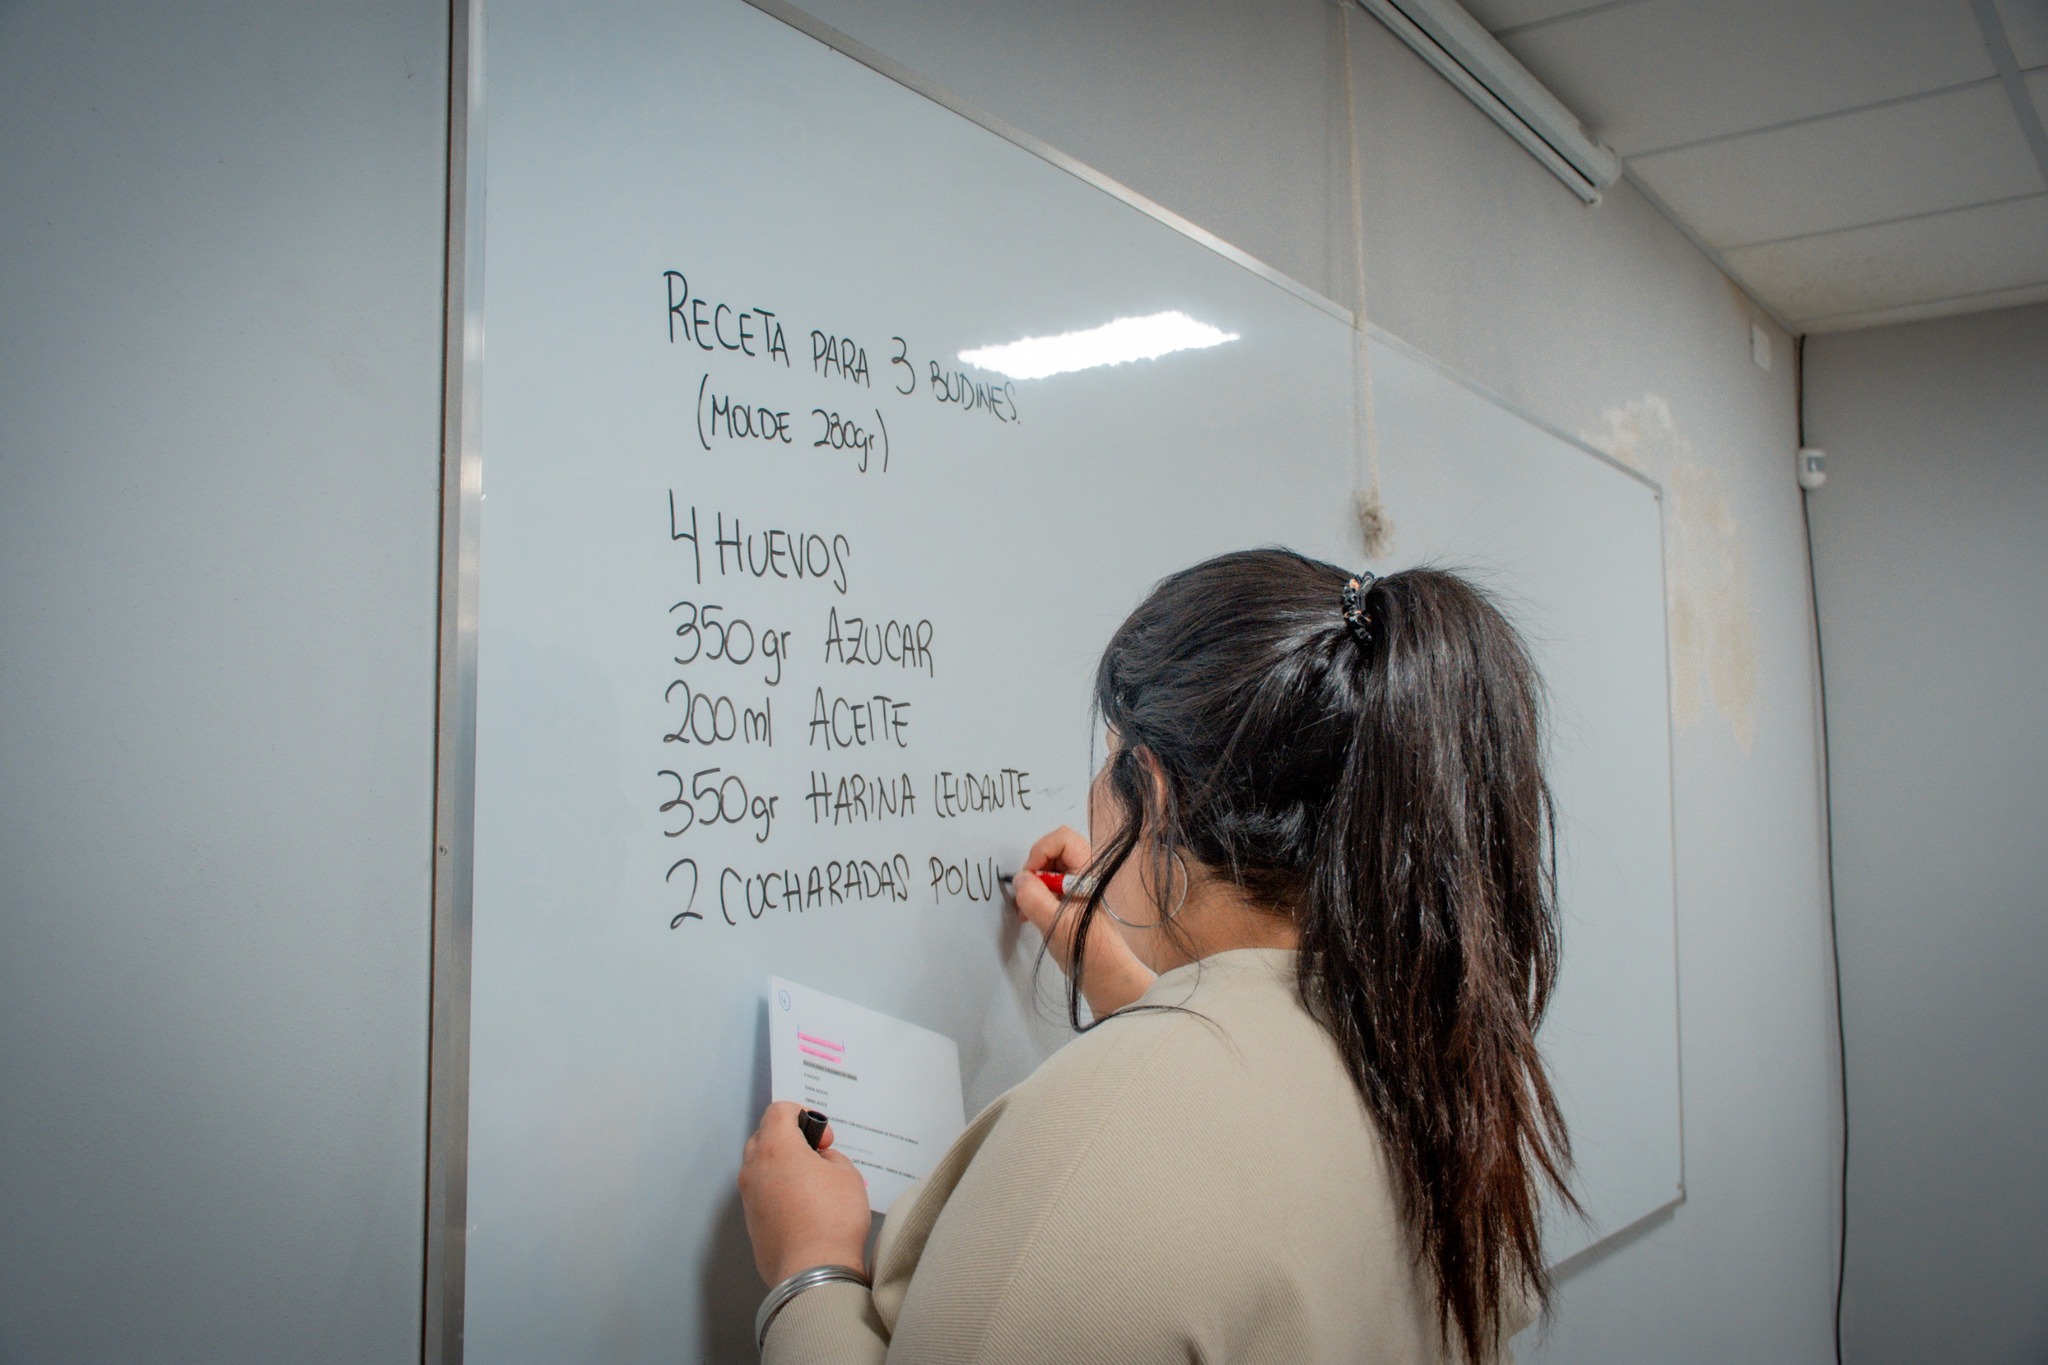 RECETA PARA 3 BUDINES.
(MOLDE 280gr)
4 HUEVOS
350gr AZUCAR
200ml ACEITE
350gr HARINA LEUDANTE
2 CUCHARADAS POLV